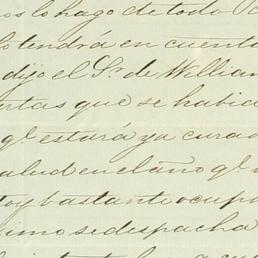 nos lo hago de todo
lo tendrá en cuenta
dijo el Sr. de William
ertas que se habia
qe. estará ya curad
salud en el año qe.
toy bastante ocupa
imo se despacha